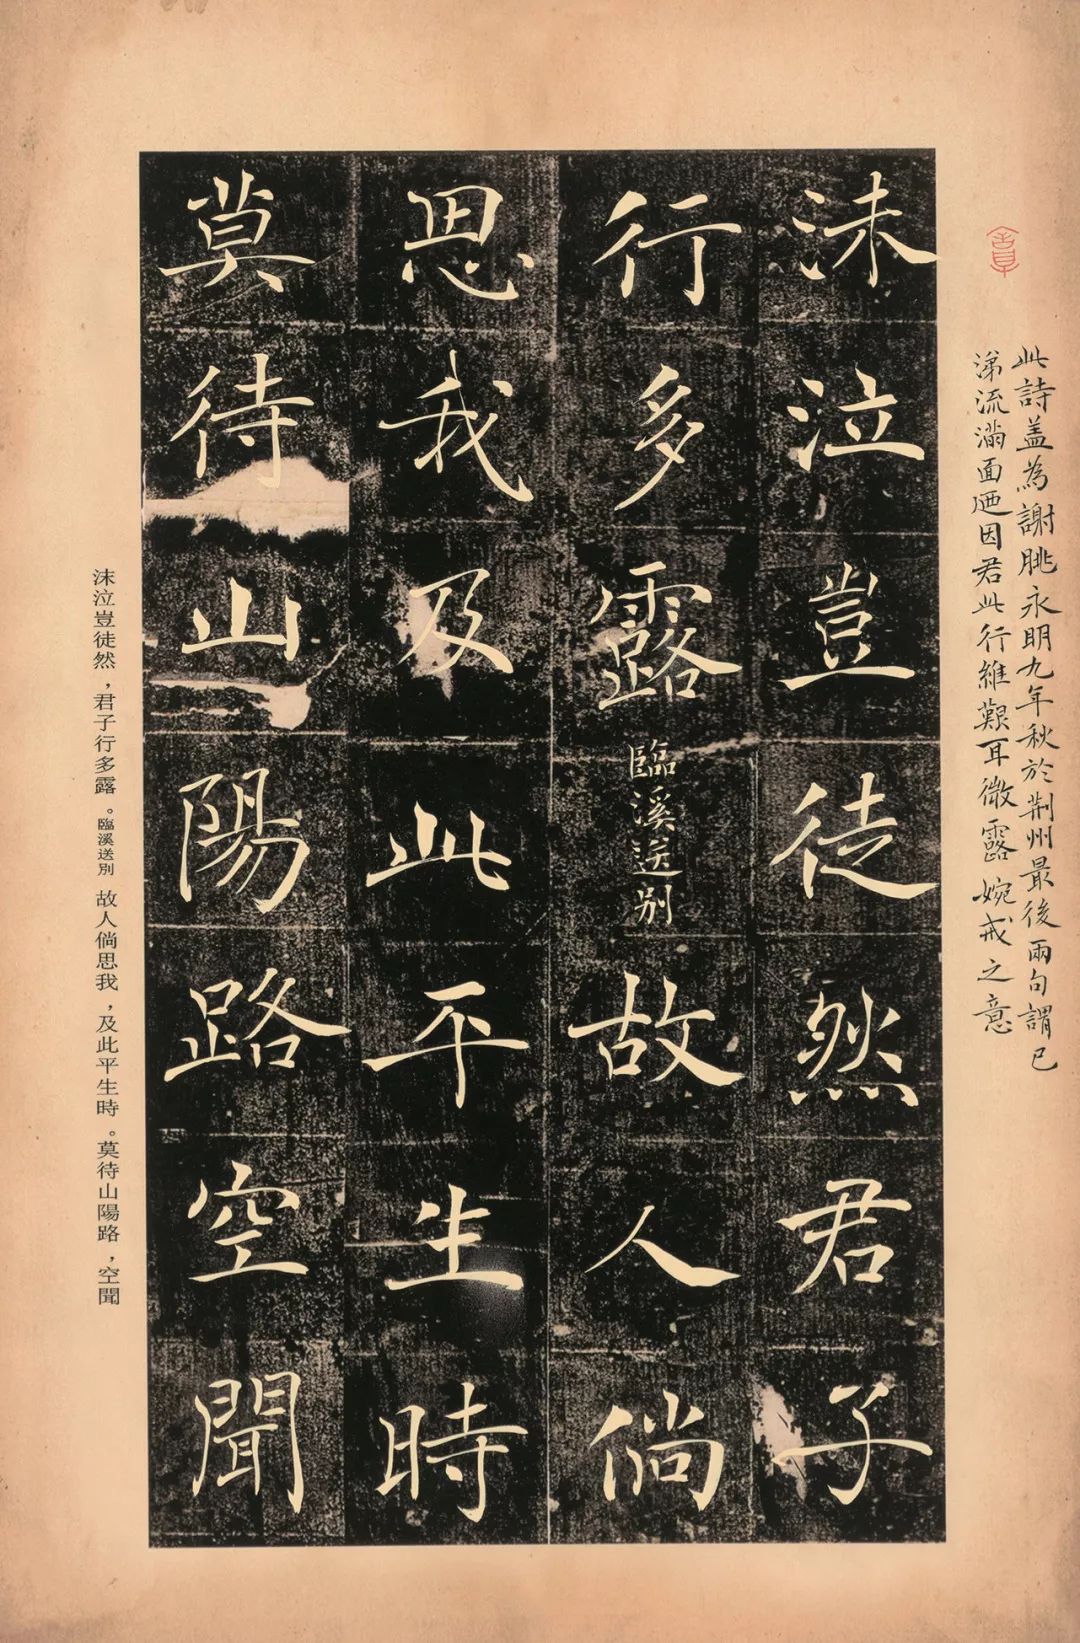 此詩蓋為謝朓永明九年秋於荆州最後兩句謂已
涕流滿面迺因君此行維艱耳微露婉戒之意
沬泣豈徒然君子
行多露臨溪送别故人倘
思我及此平生時
莫待山陽路空聞
沫泣豈徒然，君子行多露。臨溪送別 故人倘思我，及此平生時。莫待山陽路，空聞